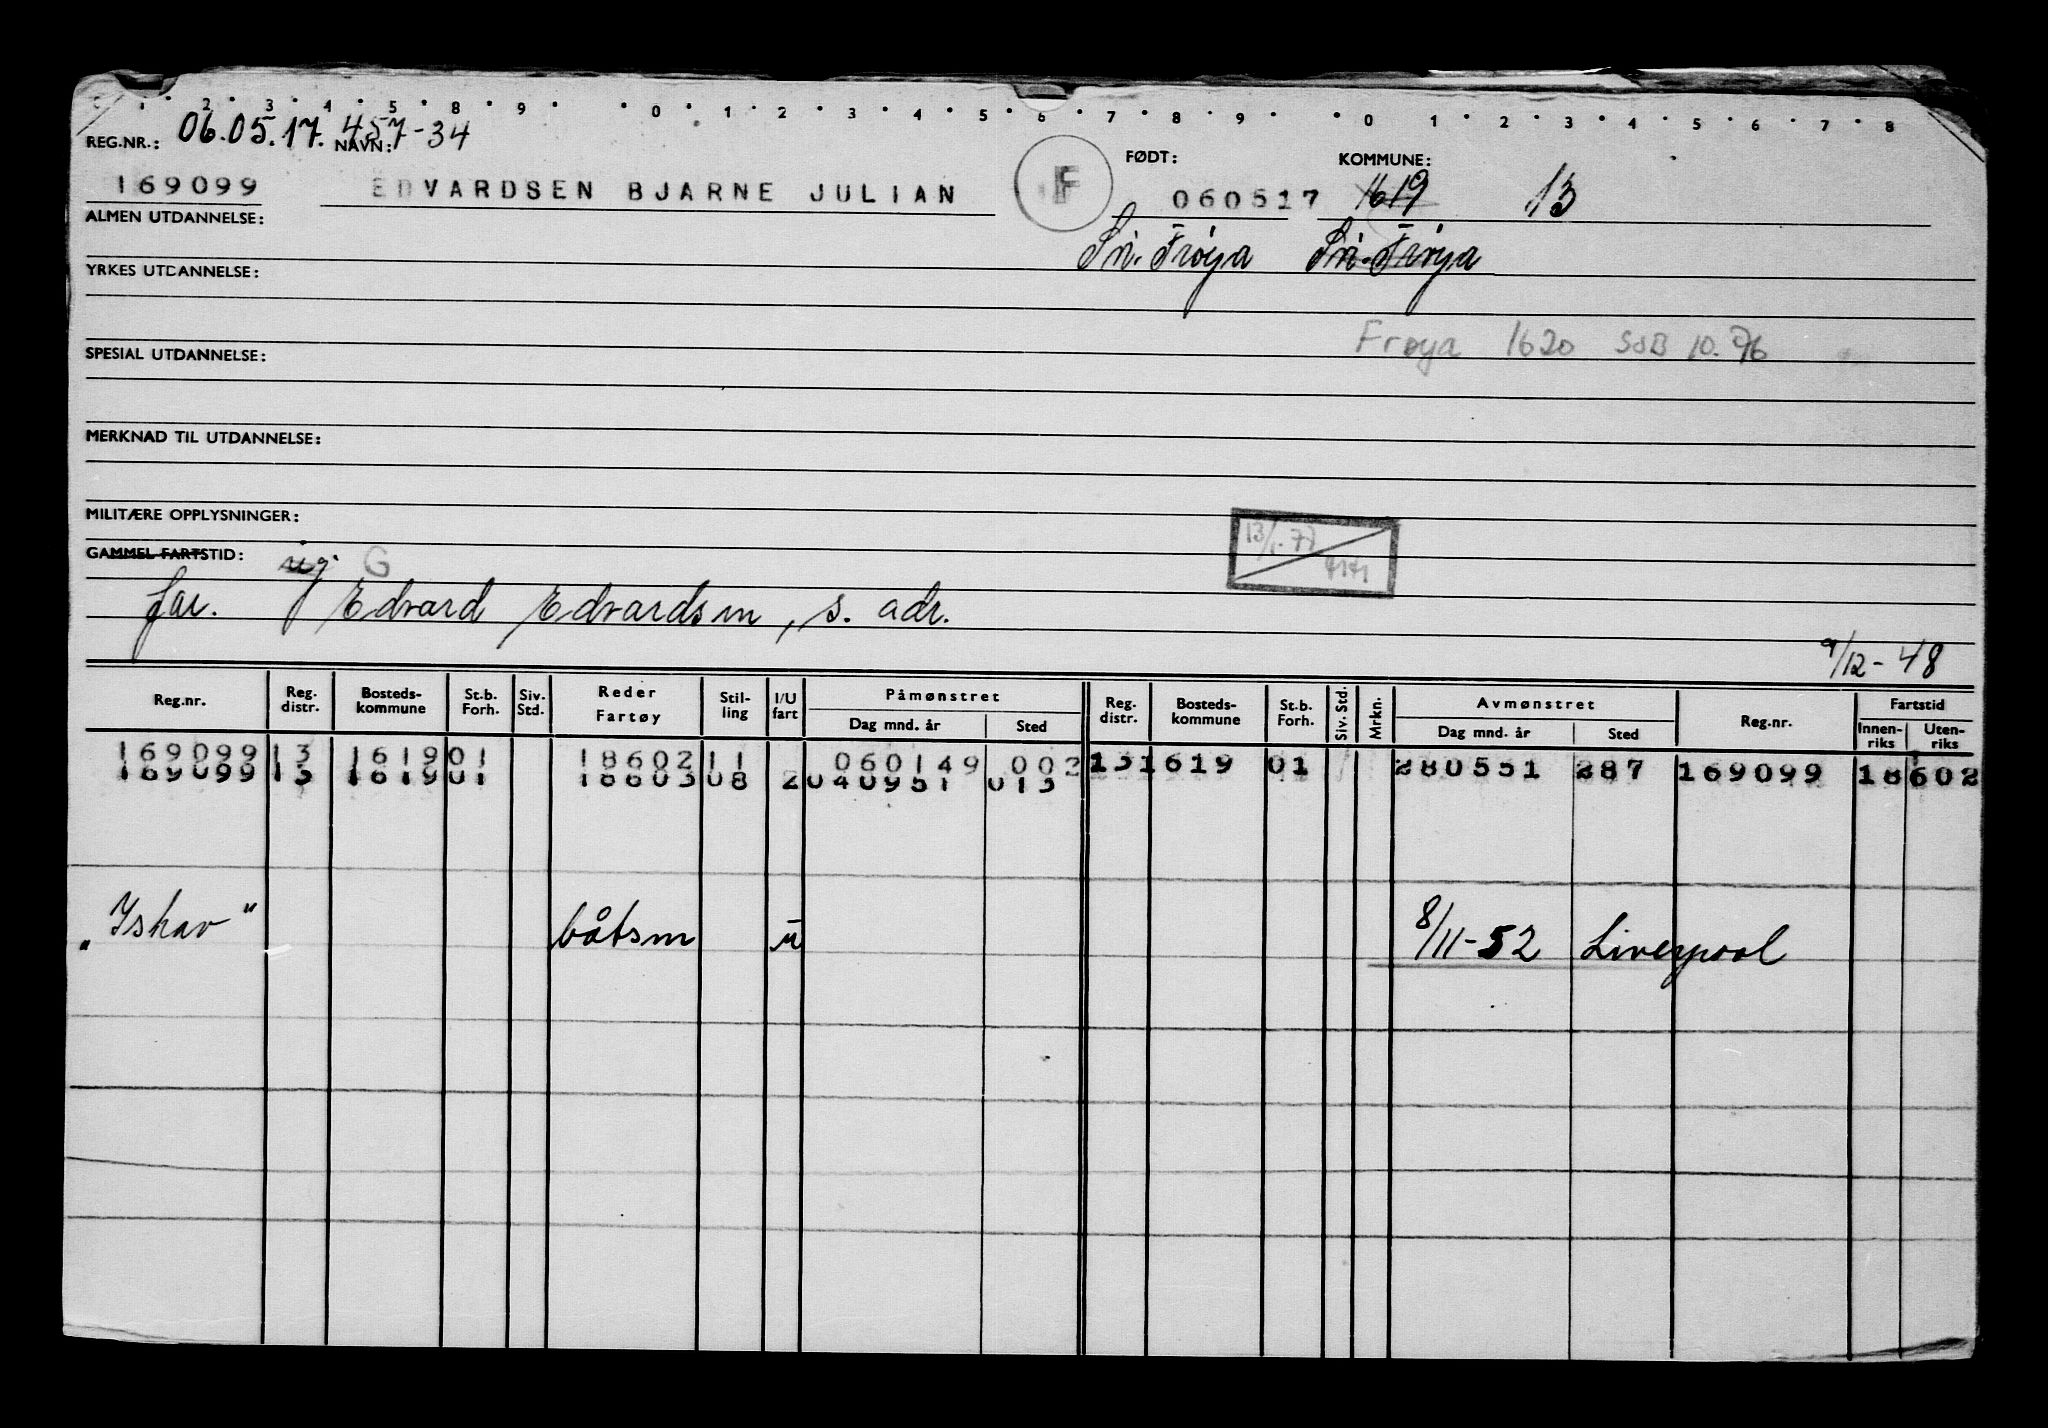 1 2 3 4 5 8 9 0 1 2 3 4 5 6 7 8 9 0 1 2 3 4 5 6 7 8
REG.NR.: 06.05.17. 457-34 NAVN: FØDT: KOMMUNE:
169099 EDVARDSEN BJARNE JULIAN F 060517 1619 13
ALMEN UTDANNELSE: Frøya Frøya
YRKES UTDANNELSE:
Frøya 1620 SSB 10.76
SPESIAL UTDANNELSE:
MERKNAD TIL UTDANNELSE:
MILITÆRE OPPLYSNINGER:
13/1-77
GAMMEL FARTSTID: G
far. Edvard Edvardsen, s. adr.
9/12-48
Reg.nr. Reg. distr. Bosteds-kommune St.b. Forh. Siv. Std. Reder Fartøy Stil-ling I/U fart Påmønstret Dag mnd. år Sted Reg. distr. Bosteds-kommune St.b. Forh. Siv. Std. Mrkn. Avmønstret Dag mnd. år Sted Reg.nr. Fartstid Innen-riks Uten-riks
169099 13 1619 01 18602 11 060149 002 13 1619 01 280551 287 169099 18602
169099 13 1619 01 18603 08 2 040951 013
"Ishav" båtsm u 8/11-52 Liverpool